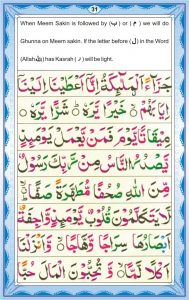 31
When Meem Sakin is followed by (ب) or (م) we will do
Ghunna on Meem sakin. If the letter before (ل) in the Word
(Allah ﷲ) has Kasrah (ـِ) will be light.
جَزَآءً الْمَلٰٓئِكَةِ اِنَّآ اَعْطَيْنٰكَ اِلَيْنَآ
اِيَابَهُمْ ۝ خَيْرًا يَّرَهٗ ۝ شَرًّا يَّرَهٗ ۝
مِيْقَاتًا يَّوْمَ فَمَنْ يَّعْمَلْ يَوْمَئِذٍ
يَّصْدُرُ النَّاسُ مِنْ رَّبِّكَ رَسُوْلٌ
مِّنَ اللّٰهِ صُحُفًا مُّطَهَّرَةً صَفًّا
لَّا يَتَكَلَّمُوْنَ قُلُوْبٌ يَّوْمَئِذٍ وَّاجِفَةٌ
اَبْصَارُهَا سِرَاجًا وَّهَّاجًا ۝ وَّاَنْزَلْنَا
اَكْلًا لَّمًّا ۝ وَّتُحِبُّوْنَ الْمَالَ حُبًّا